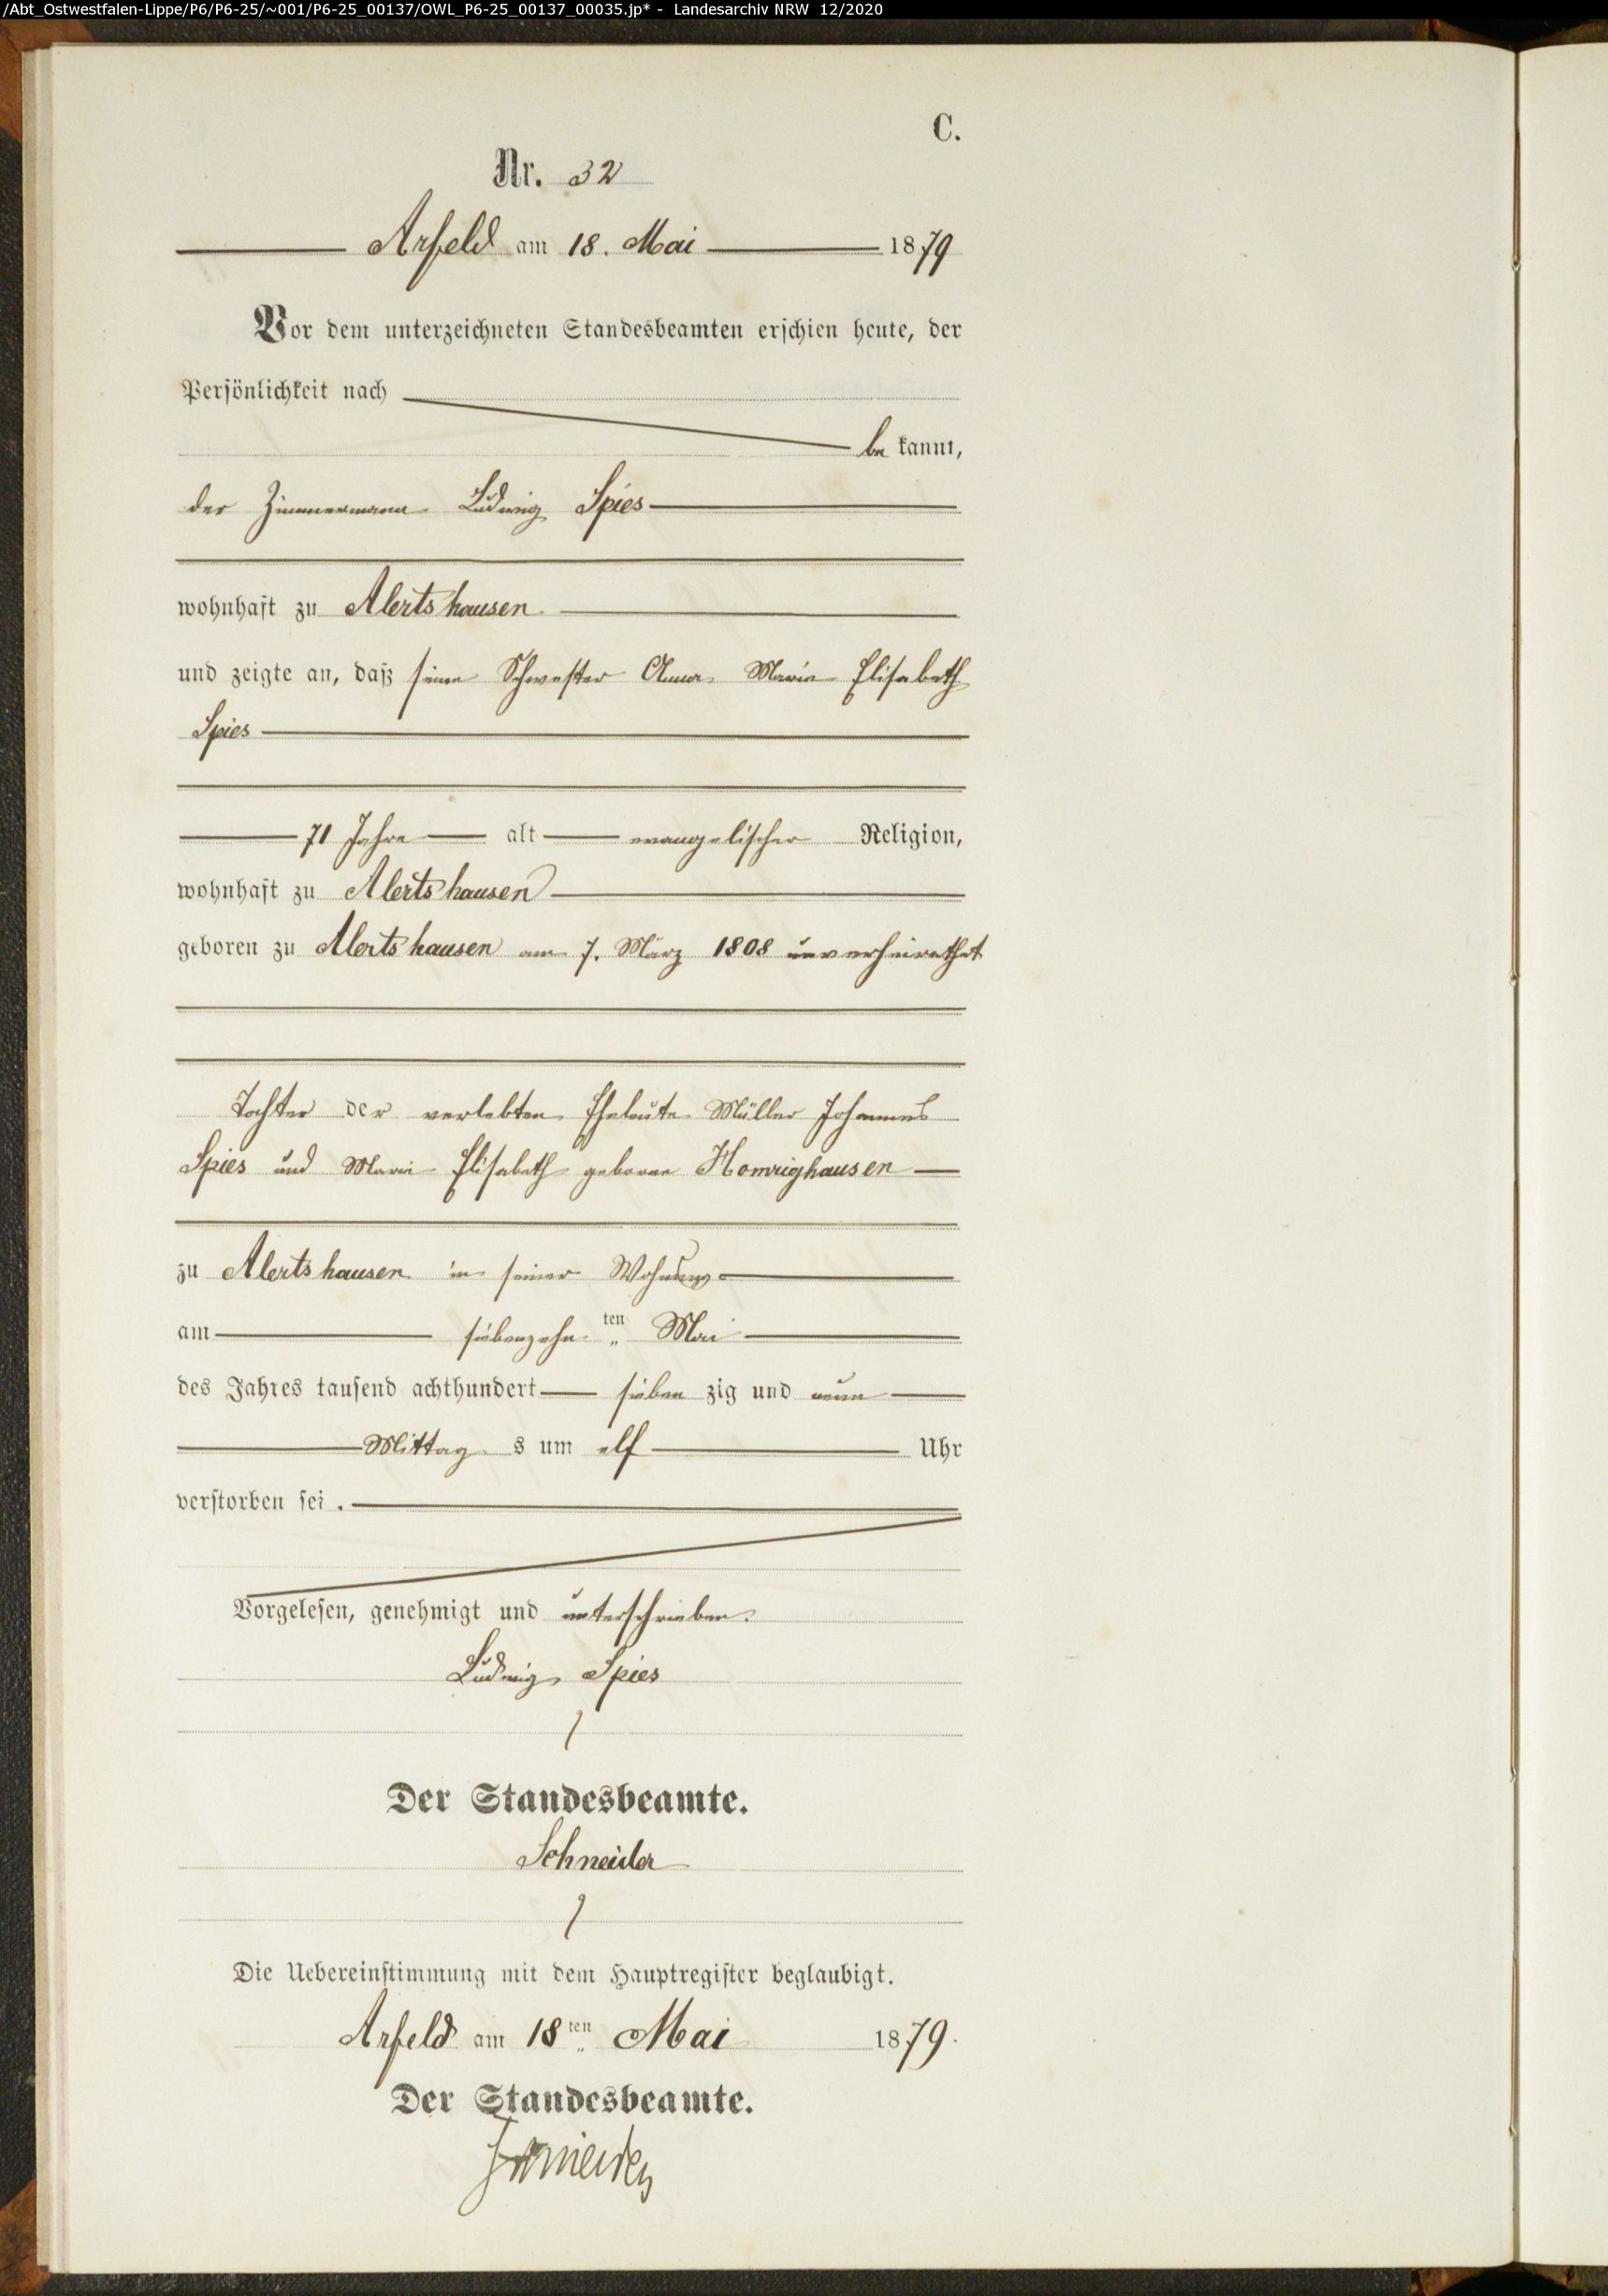 /Abt_Ostwestfalen-Lippe/P6/P6-25/~001/P6-25_00137/OWL_P6-25_00137_00035.jp* - Landesarchiv NRW 12/2020
C.
Nr. 32
Arfeld am 18. Mai 1879
Vor dem unterzeichneten Standesbeamten erschien heute, der
Persönlichkeit nach
be kannt,
der Zimmermann Ludwig Spies
wohnhaft zu Alertshausen.
und zeigte an, daß seine Schwester Anna Maria Elisabeth
Spies
71 Jahre alt evangelischer Religion,
wohnhaft zu Alertshausen
geboren zu Alertshausen am 7. März 1808 unverheirathet
Tochter der verlebten Eheleute Müller Johannes
Spies und Marie Elisabeth geborne Homrighausen
zu Alertshausen in seiner Wohnung
am siebenzehn ten Mai
des Jahres tausend achthundert sieben zig und neun
Mittag s um elf Uhr
verstorben sei.
Vorgelesen, genehmigt und unterschrieben.
Ludwig Spies
Der Standesbeamte.
Schneider
Die Uebereinstimmung mit dem Hauptregister beglaubigt.
Arfeld am 18ten Mai 1879.
Der Standesbeamte.
Schneider